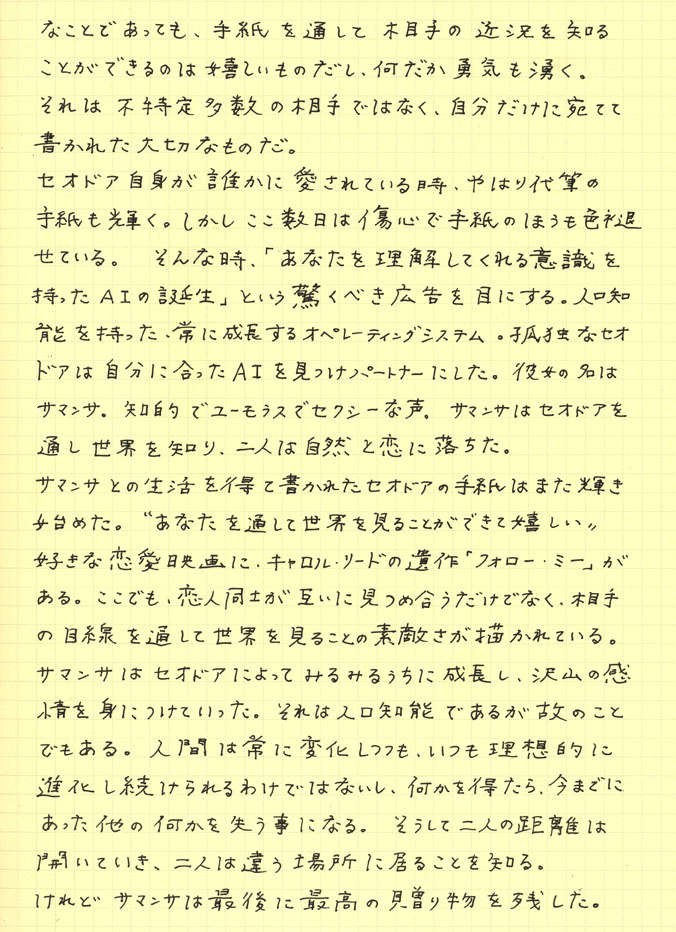 なことであっても、手紙を通して相手の近況を知る
ことができるのは嬉しいものだし、何だか勇気も湧く。
それは不特定多数の相手ではなく、自分だけに宛てて
書かれた大切なものだ。
セオドア自身が誰かに愛されている時、やはり代筆の
手紙も輝く。しかしここ数日は傷心で手紙のほうも色褪
せている。 そんな時、「あなたを理解してくれる意識を
持ったAIの誕生」という驚くべき広告を目にする。人口知
能を持った、常に成長するオペレーティングシステム。孤独なセオ
ドアは自分に合ったAIを見つけパートナーにした。彼女の名は
サマンサ。知的でユーモラスでセクシーな声。サマンサはセオドアを
通し世界を知り、二人は自然と恋に落ちた。
サマンサとの生活を得て書かれたセオドアの手紙はまた輝き
始めた。“あなたを通して世界を見ることができて嬉しい〃
好きな恋愛映画に、キャロル・リードの遺作「フォロー・ミー」が
ある。ここでも、恋人同士が互いに見つめ合うだけでなく、相手
の目線を通して世界を見ることの素敵さが描かれている。
サマンサはセオドアによってみるみるうちに成長し、沢山の感
情を身につけていった。それは人口知能であるが故のこと
でもある。人間は常に変化しつつも、いつも理想的に
進化し続けられるわけではないし、何かを得たら、今までに
あった他の何かを失う事になる。 そうして二人の距離は
開いていき、二人は違う場所に居ることを知る。
けれどサマンサは最後に最高の贈り物を残した。